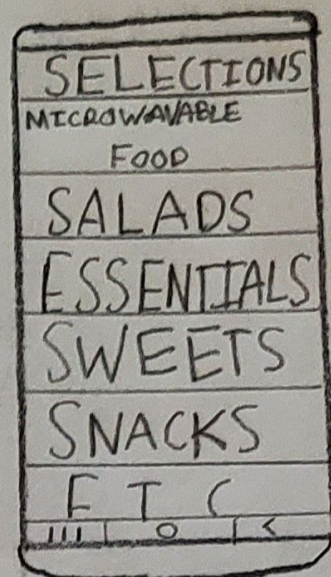 SELECTIONS
MICROWAVABLE
FOOD
SALADS
ESSENTIALS
SWEETS
SNACKS
ETC